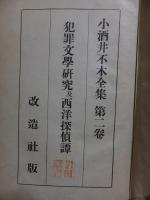 小酒井不木全集 第二卷
犯罪文學研究及西洋探偵譚
改造社版